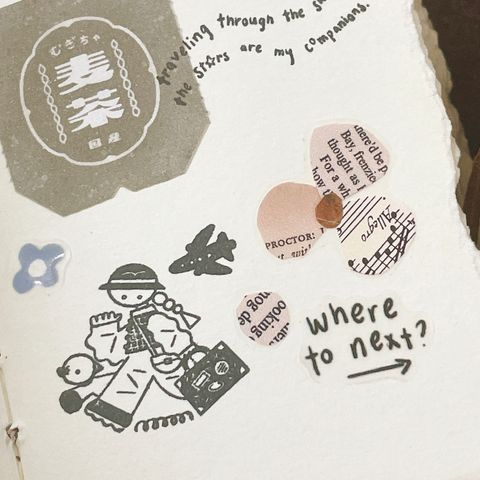 むぎちゃ
麦茶
国産
traveling through the
the st☆rs are my companions.
there'd be p
Bay, frenzied
thought as I
For a wh
how t
PROCTOR: I
Allegro
mog de
ooking
where
to next?